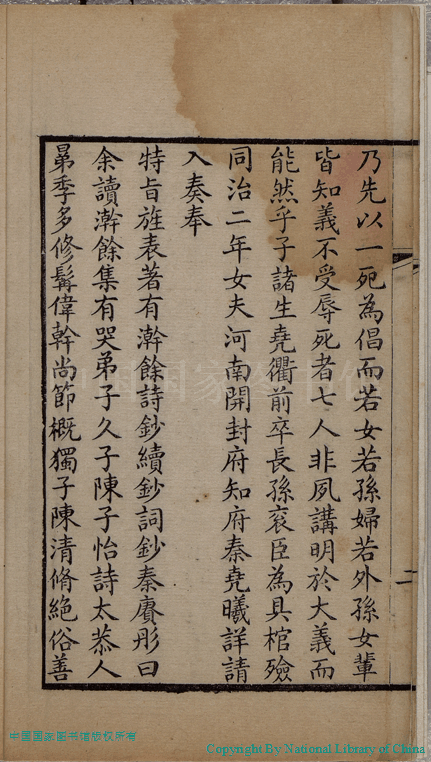 乃先以一死為倡而若女若孫婦若外孫女輩
皆知義不受辱死者七人非夙講明於大義而
能然乎子諸生堯衢前卒長孫衮臣為具棺殮
同治二年女夫河南開封府知府秦堯曦詳請
入奏奉
特旨旌表著有澣餘詩鈔續鈔詞鈔秦賡彤曰
余讀澣餘集有哭弟子久子陳子怡詩太恭人
弟季多修髯偉幹尚節概獨子陳清脩絕俗善
二
中国国家图书馆版权所有
Copyright By National Library of China